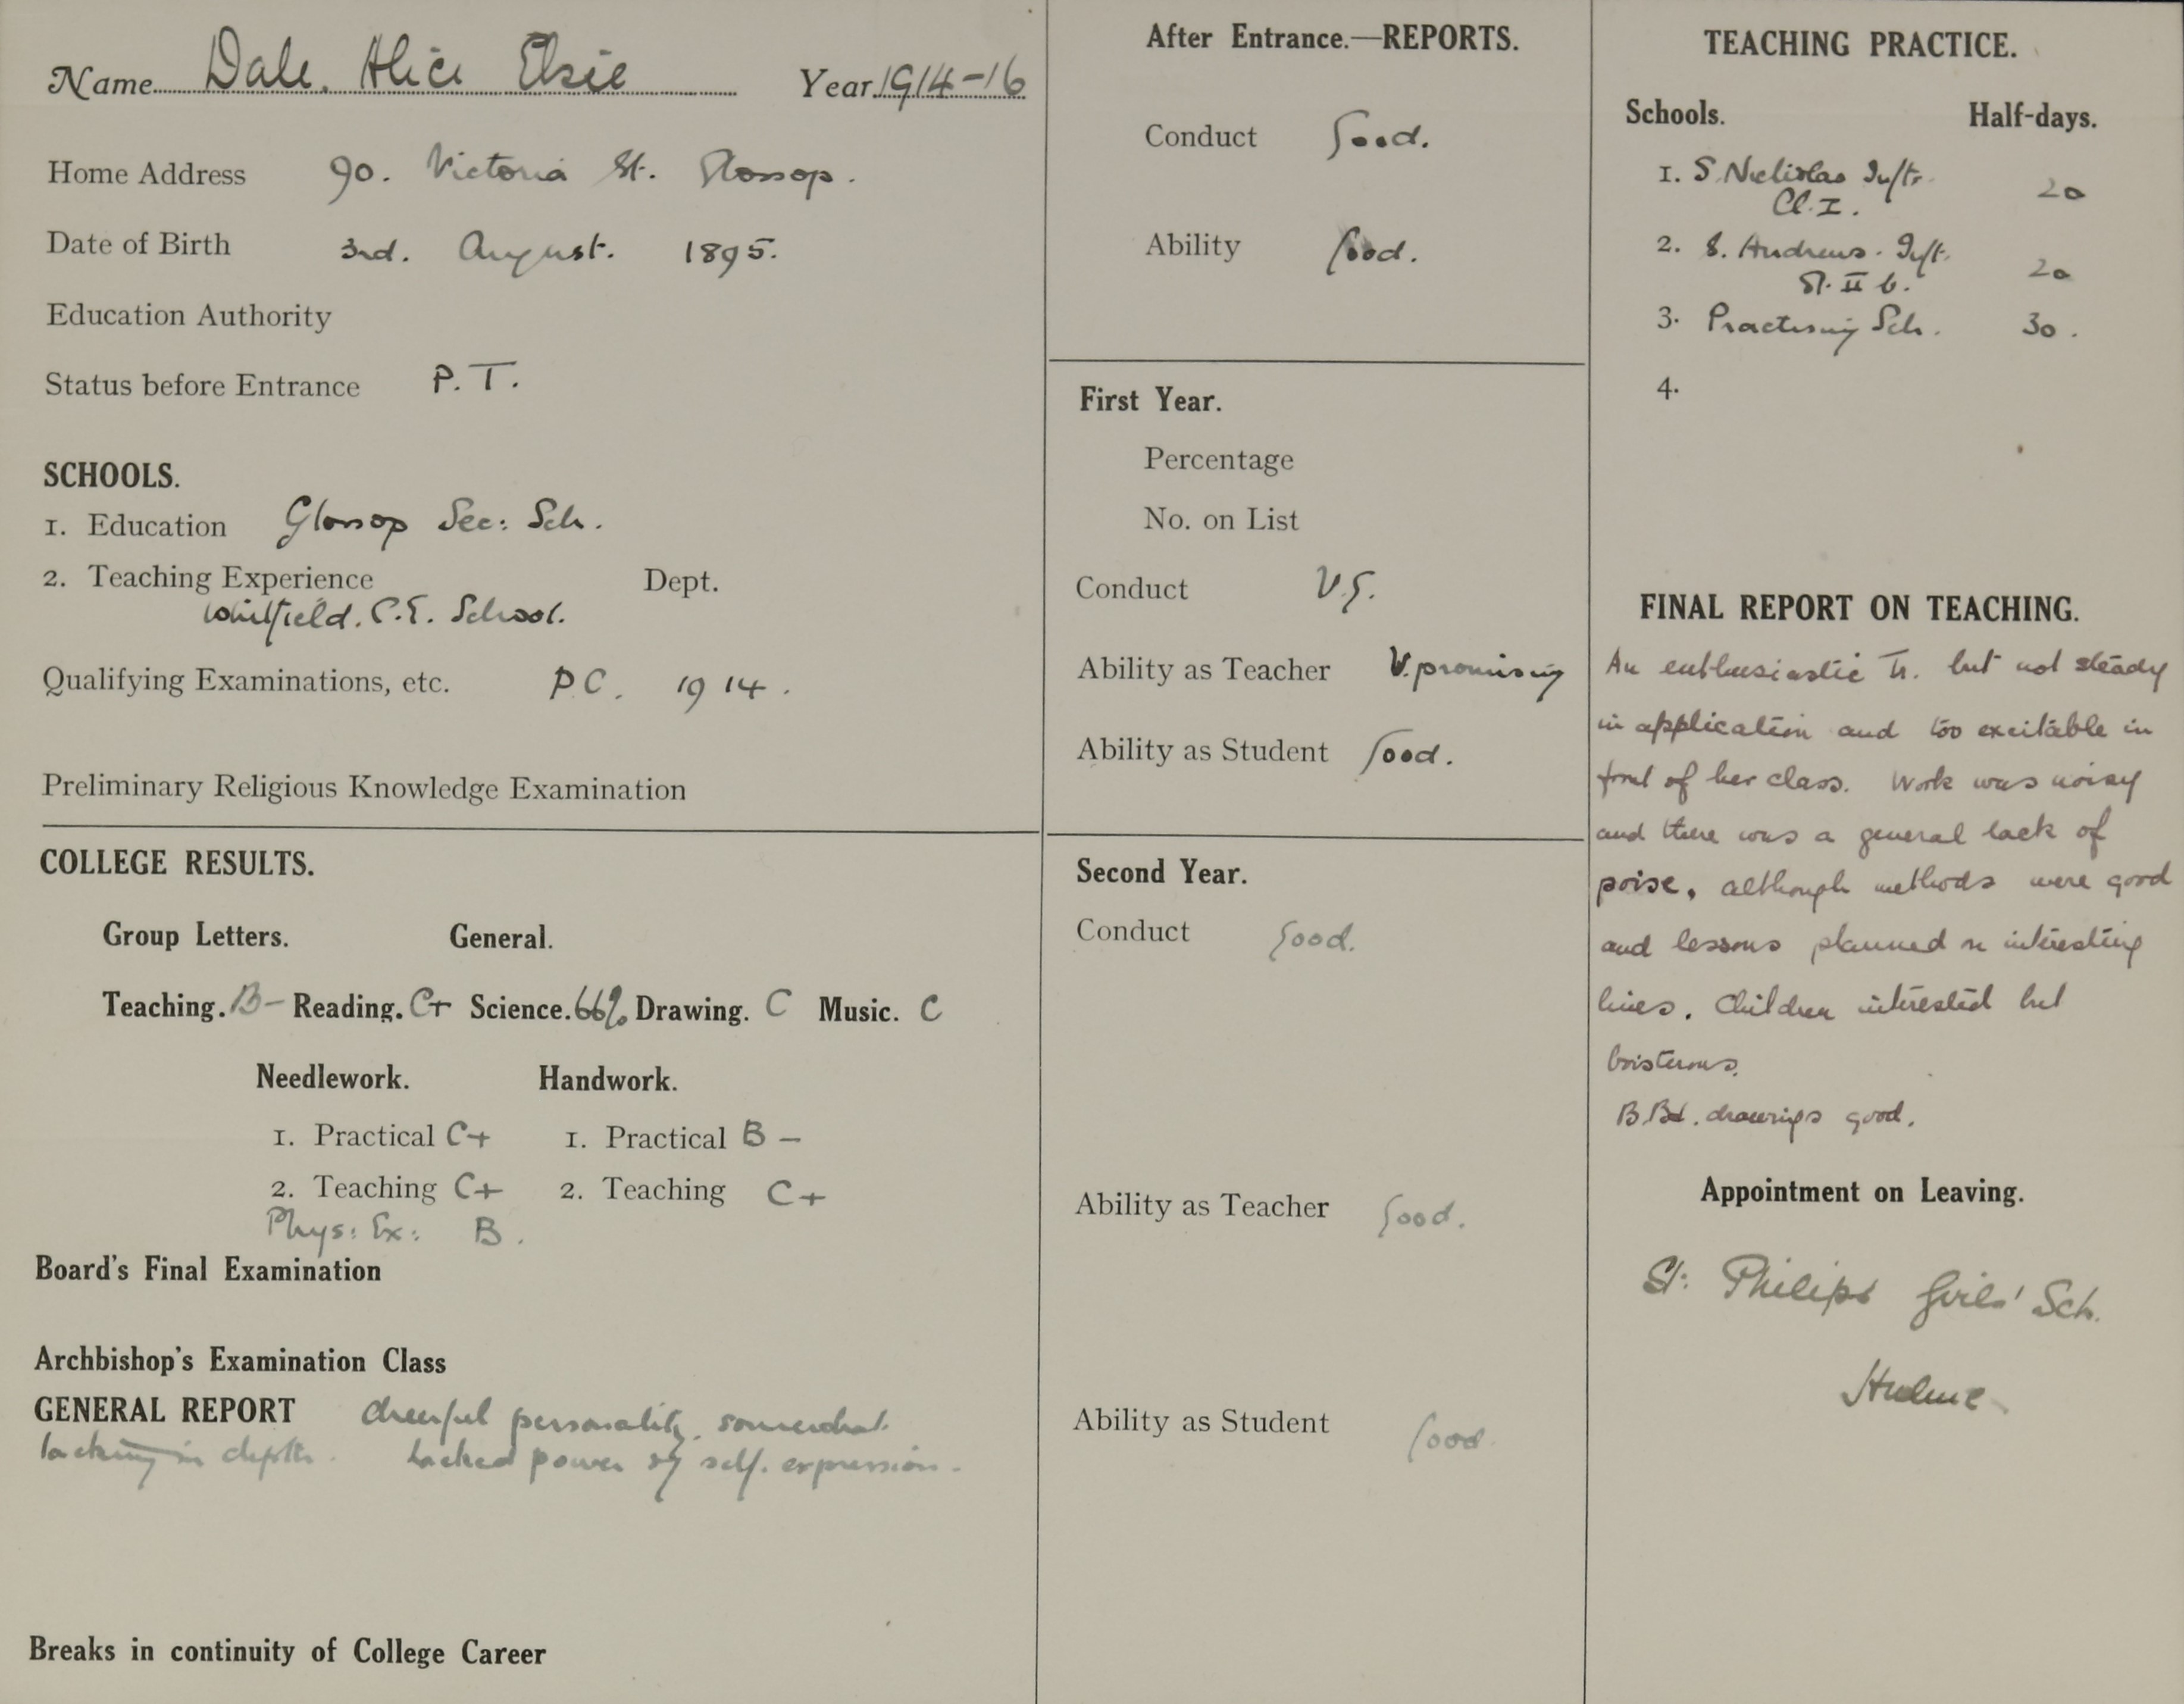 Name Dale. Alice Elsie Year 1914-16
Home Address 90. Victoria St. Glossop.
Date of Birth 3rd. August. 1895.
Education Authority
Status before Entrance P.T.
SCHOOLS.
1. Education Glossop Sec: Sch.
2. Teaching Experience Dept.
Whitfield. C.E. School.
Qualifying Examinations, etc. P.C. 1914.
Preliminary Religious Knowledge Examination
COLLEGE RESULTS.
Group Letters. General.
Teaching. B- Reading. C+ Science. 66% Drawing. C Music. C
Needlework. Handwork.
1. Practical C+ 1. Practical B-
2. Teaching C+ 2. Teaching C+
Phys: Ex: B.
Board's Final Examination
Archbishop's Examination Class
GENERAL REPORT cheerful personality, somewhat
lacking in depth. Lacked power of self. expression.
Breaks in continuity of College Career
After Entrance.—REPORTS.
Conduct Good.
Ability Good.
First Year.
Percentage
No. on List
Conduct V.G.
Ability as Teacher V.promising
Ability as Student Good.
Second Year.
Conduct Good.
Ability as Teacher Good.
Ability as Student Good.
TEACHING PRACTICE.
Schools. Half-days.
1. S. Nicholas Infts. 20
Cl. I.
2. S. Andrews. Inft. 20
St. II b.
3. Practising Sch. 30.
4.
FINAL REPORT ON TEACHING.
An enthusiastic Tr. but not steady
in application and too excitable in
front of her class. Work was noisy
and there was a general lack of
poise, although methods were good
and lessons planned on interesting
lines. Children interested but
boisterous.
B.Bd. drawings good.
Appointment on Leaving.
St: Philips Girls' Sch.
Hulme